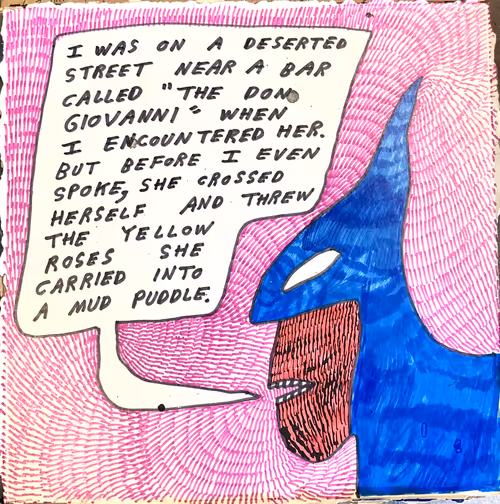 I WAS ON A DESERTED
STREET NEAR A BAR
CALLED "THE DON
GIOVANNI" WHEN
I ENCOUNTERED HER.
BUT BEFORE I EVEN
SPOKE, SHE CROSSED
HERSELF AND THREW
THE YELLOW
ROSES SHE
CARRIED INTO
A MUD PUDDLE.